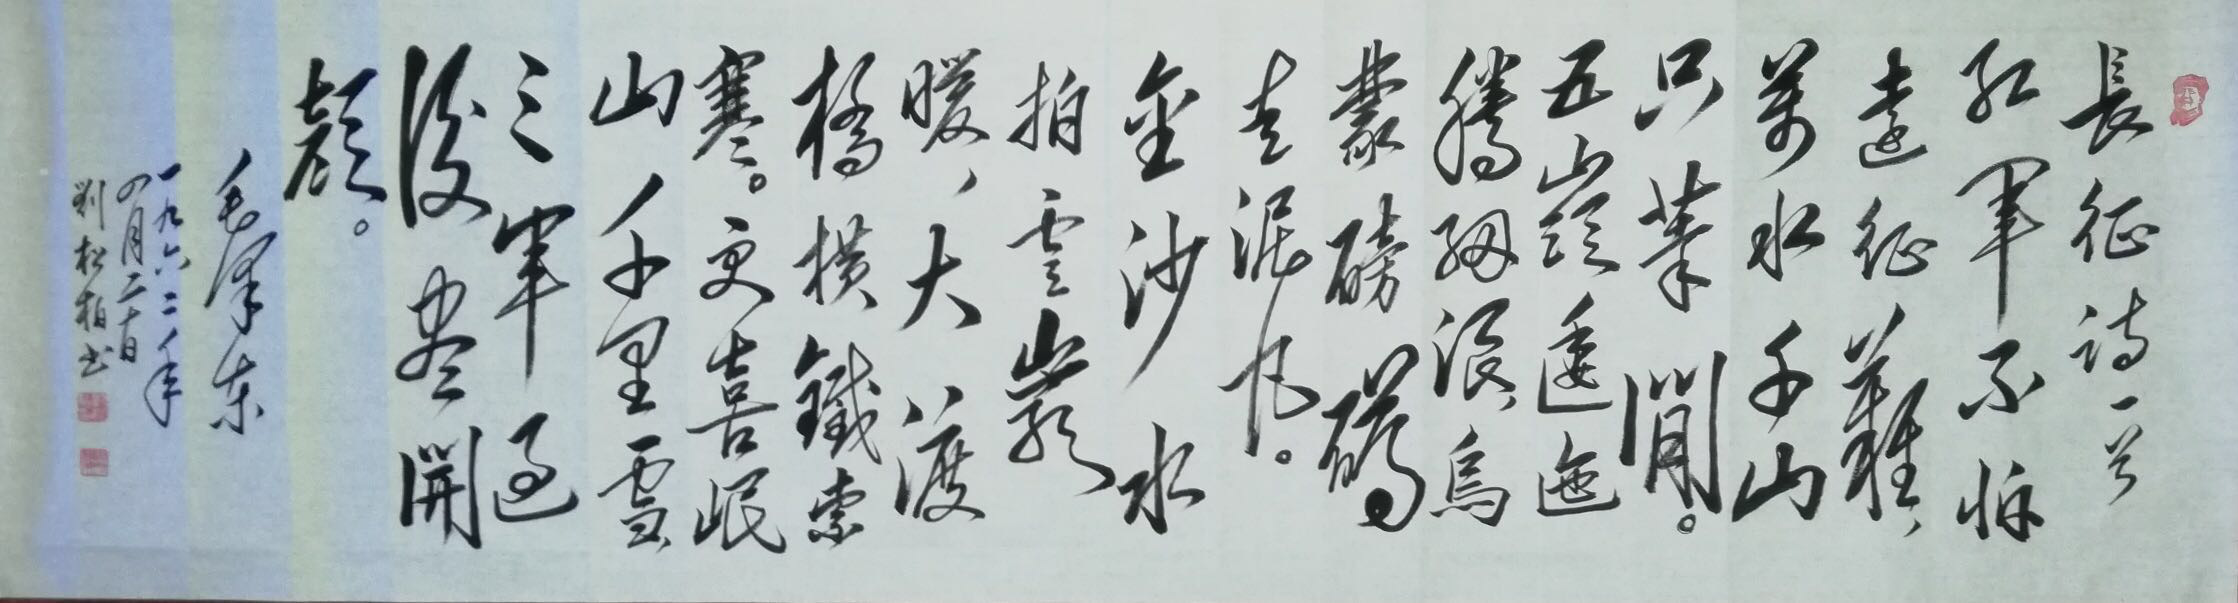 長征詩一首
紅軍不怕
遠征難，
萬水千山
只等閒。
五嶺逶迤
騰細浪烏
蒙磅礴
走泥丸。
金沙水
拍雲巖
暖，大渡
橋橫鐵索
寒。更喜岷
山千里雪
三軍過
後盡開
顏。
毛澤東
一九六二年
四月二十日
劉松柏书